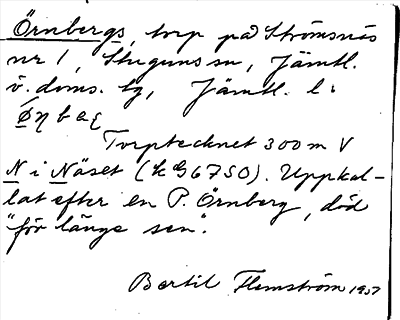 Örnbergs, torp på Strömsnäs
nr 1, Stuguns sn, Jämtl.
ö. doms. tg, Jämtl. l:
Torptecknet 300 m V
N i Näset (k G6750). Uppkal-
lat efter en P. Örnberg, död
"för länge sen".
Bertil Flemström 1957